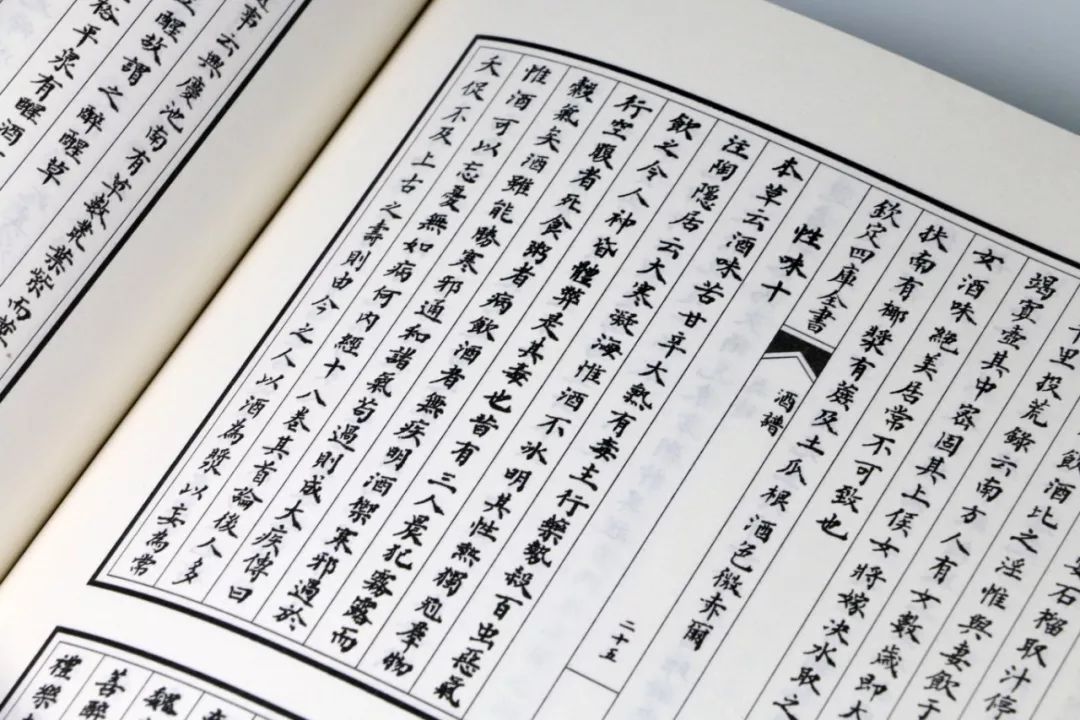 安石榴取汁停
飲酒比之淫惟與妻飲于
千里投荒錄云南方人有女數歲即大
竭寘壺其中密固其上候女將嫁決水取之
女酒味絕美居常不可致也
扶南有椰漿有蔗及土瓜根酒色微赤爾
欽定四庫全書
酒譜
二十五
性味十
本草云酒味苦甘辛大熱有毒主行藥勢殺百虫惡氣
注陶隱居云大寒凝海惟酒不冰明其性熱獨冠羣物
飲之令人神昏體弊是其毒也昔有三人晨犯霧露而
行空腹者死食粥者病飲酒者無疾明酒禦寒邪過於
穀氣矣酒雖能勝寒邪通和諸氣苟過則成大疾傳曰
惟酒可以忘憂無如病何內經十八卷其首論後人多
夭促不及上古之壽則由今之人以酒為漿以妄為常
魏
善醉
禮樂
韋云興慶池南有草數叢葉紫而莖
醒故謂之醉醒草
裕平泉有醒酒